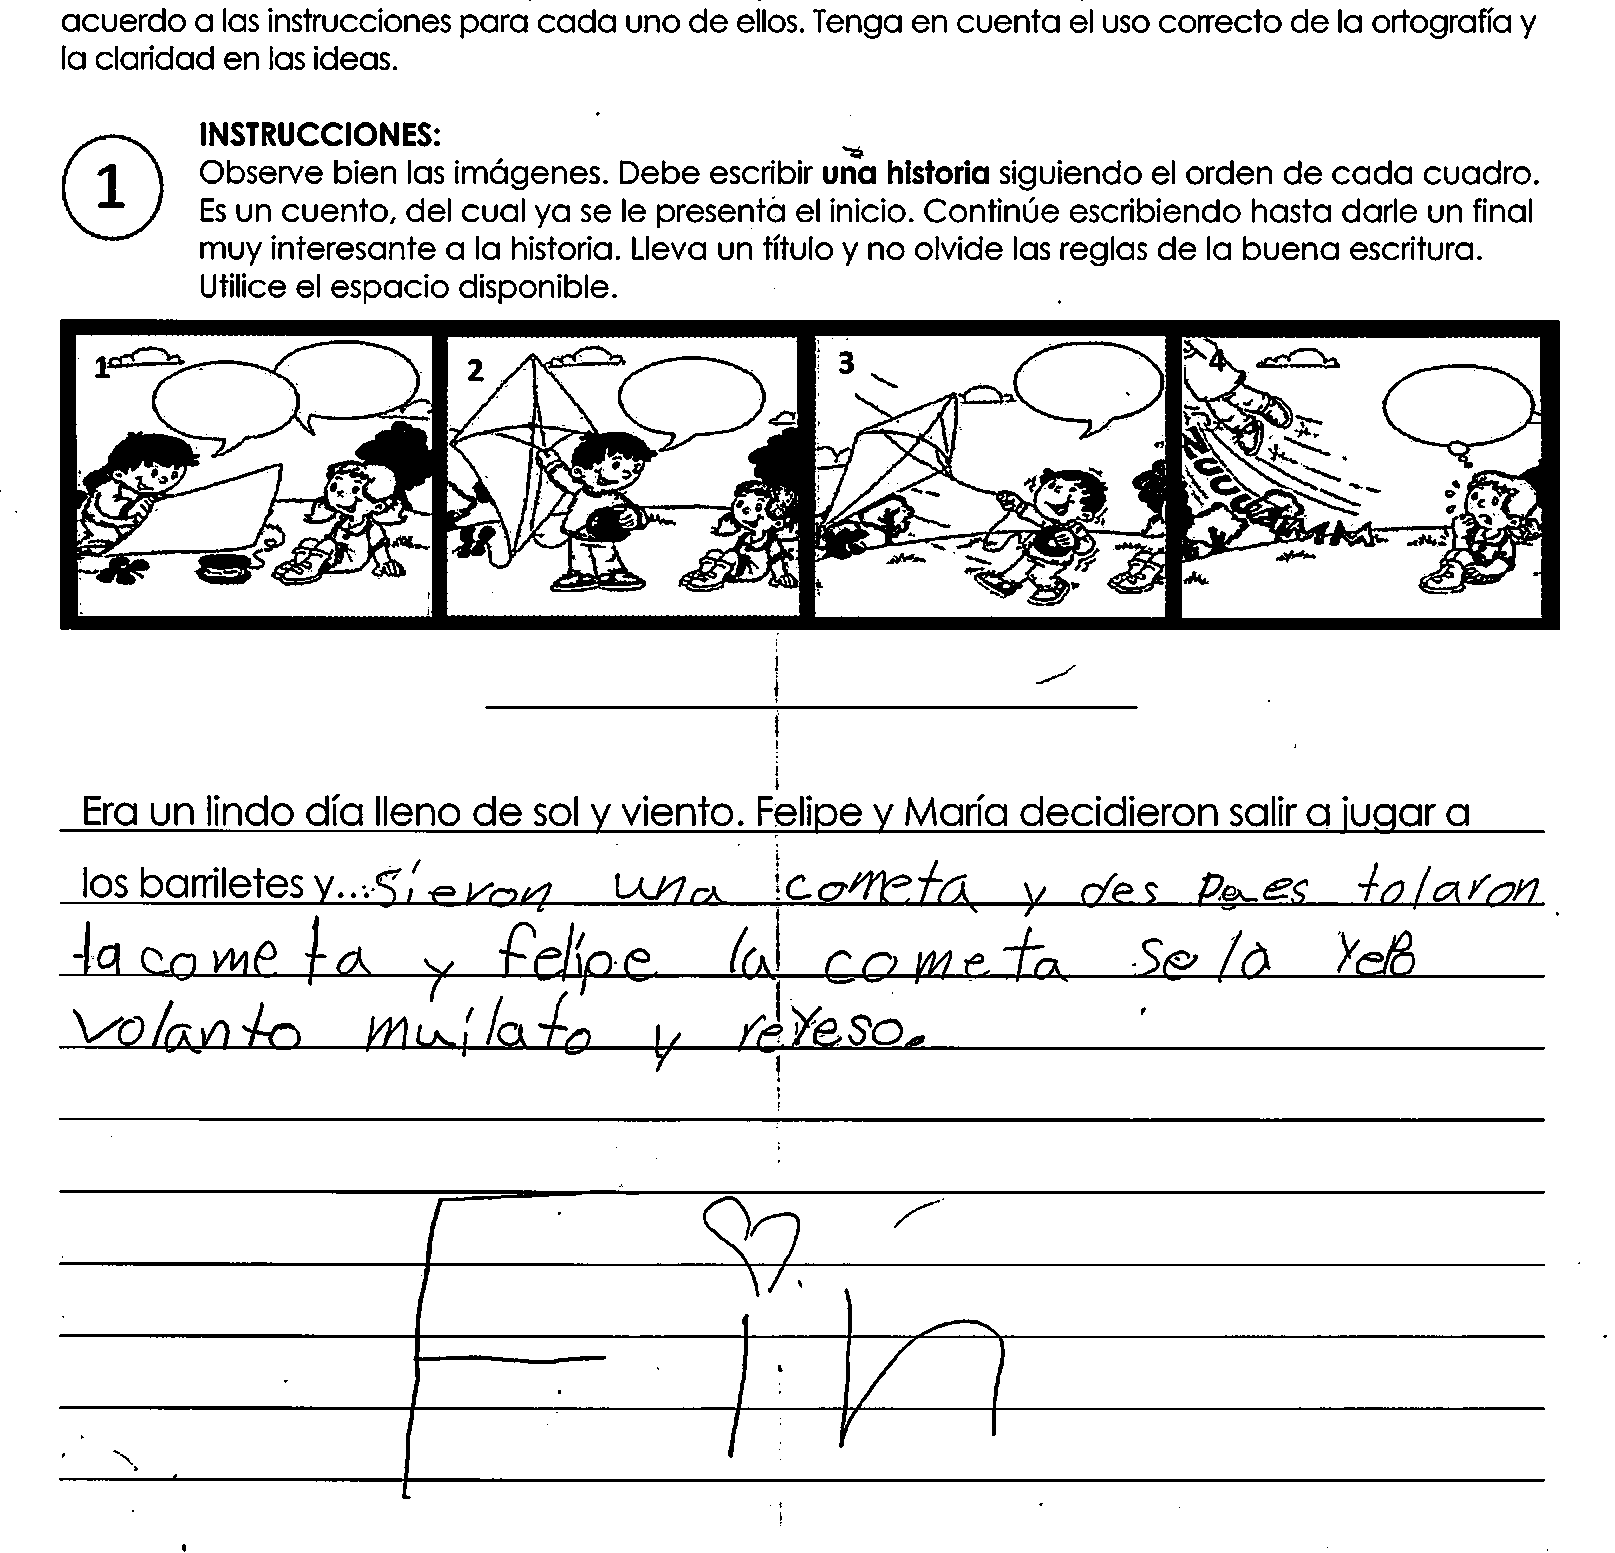 acuerdo a las instrucciones para cada uno de ellos. Tenga en cuenta el uso correcto de la ortografía y
la claridad en las ideas.
1
INSTRUCCIONES:
Observe bien las imágenes. Debe escribir una historia siguiendo el orden de cada cuadro.
Es un cuento, del cual ya se le presenta el inicio. Continúe escribiendo hasta darle un final
muy interesante a la historia. Lleva un título y no olvide las reglas de la buena escritura.
Utilice el espacio disponible.
1 2 3 4
Era un lindo día lleno de sol y viento. Felipe y María decidieron salir a jugar a
los barriletes y... sieron una cometa y des pues tolaron
la cometa y felipe la cometa se la
volanto muilato y reyeso.
Fin